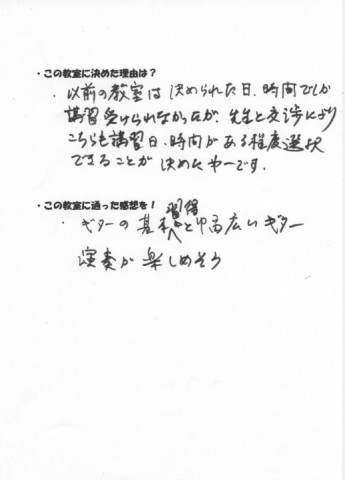 ・この教室に決めた理由は？
・以前の教室は決められた日、時間でしか
講習受けられなかったが、先生と交渉により
こちらも講習日、時間がある程度選択
できることが決めた中一です。
・この教室に通った感想を！
・ギターの基本習得と幅広いギター
演奏が楽しめそう